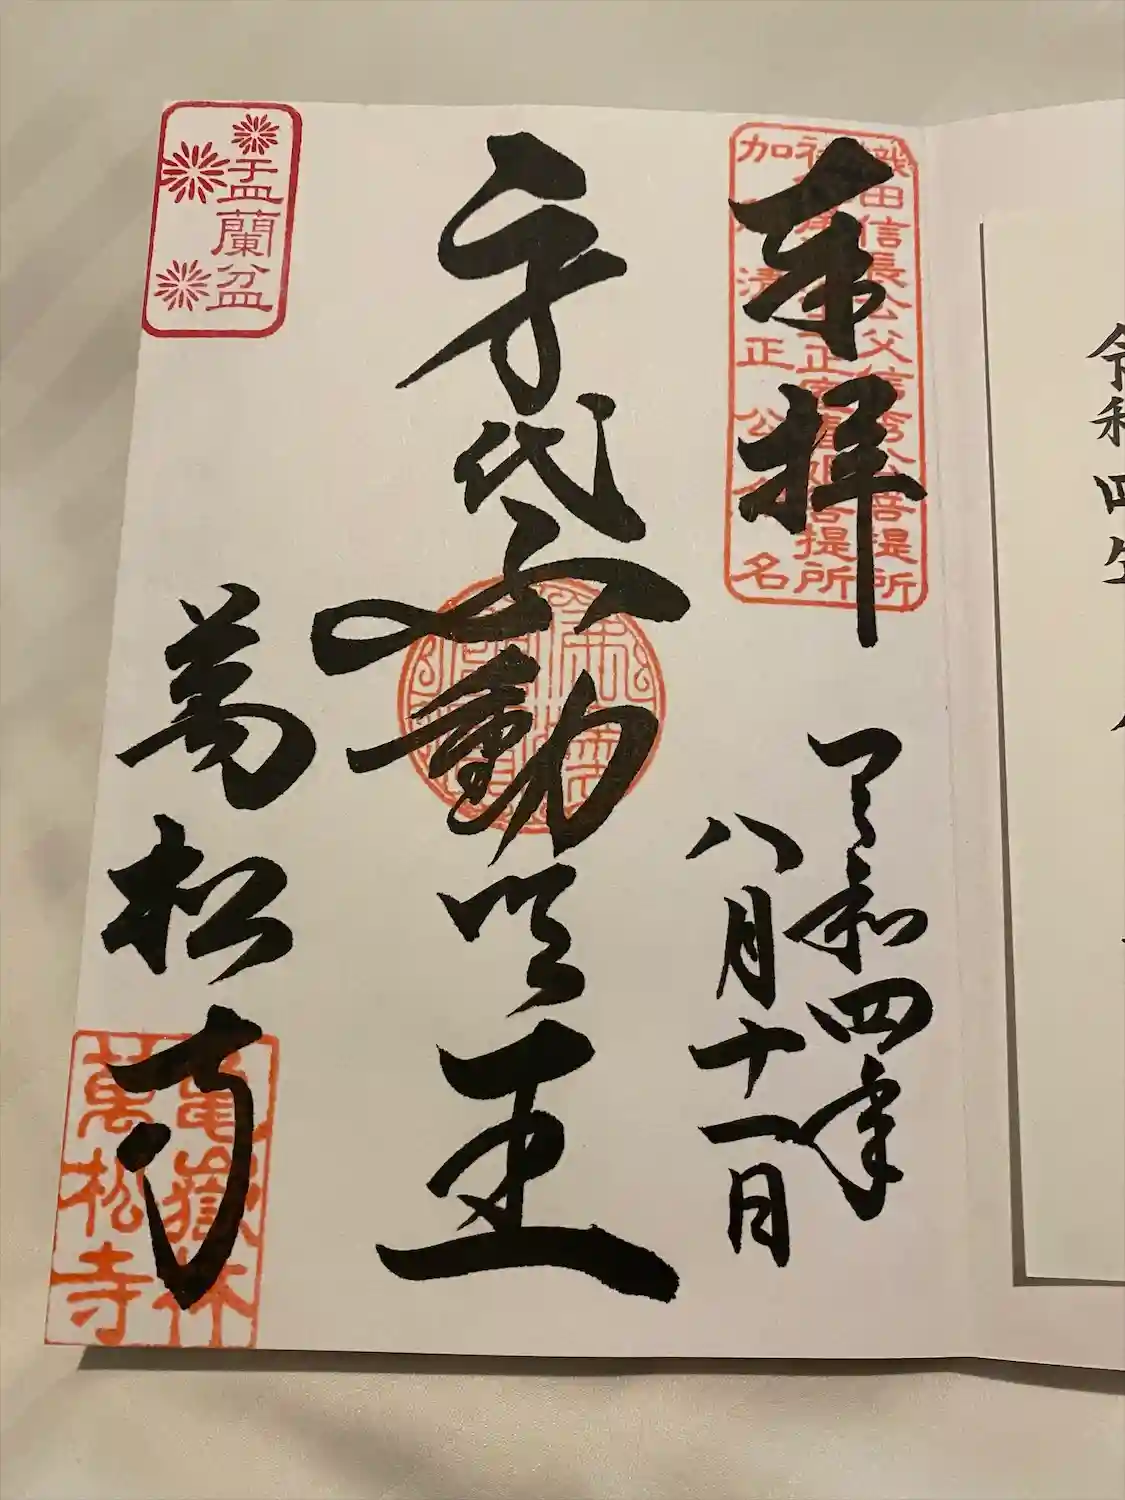 奉拝
織田信長公父信秀公菩提所
加藤清正公命名
令和四年
八月十一日
身代不動明王
盂蘭盆
萬松寺
亀嶽林
萬松寺
令和四年